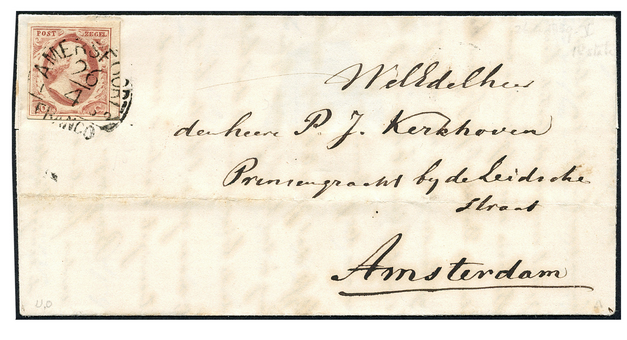 POST ZEGEL
AMERSFOORT
26
4
FRANCO
WelEdelheer
den heere P. J. Kerkhoven
Prinsengracht by de Leidsche
straat
Amsterdam